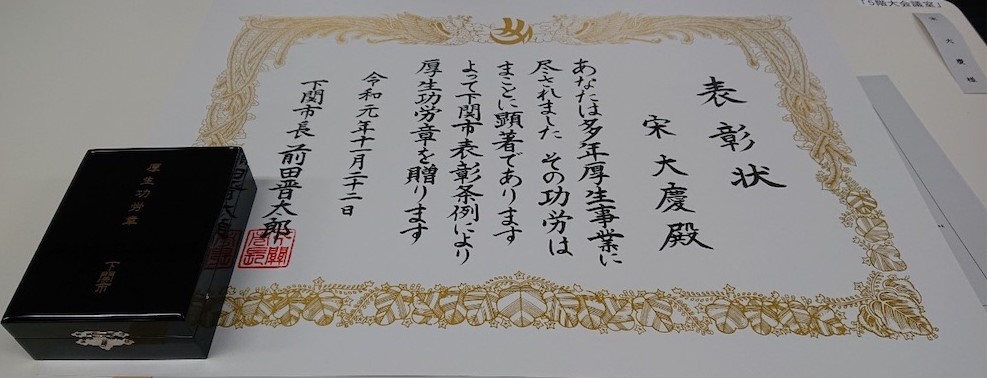 表彰状
宋大慶殿
あなたは多年厚生事業に
尽されました その功労は
まことに顕著であります
よって下関市表彰条例により
厚生功労章を贈ります
令和元年十一月二十二日
下関市長 前田晋太郎
厚生功労章
下関市
「5階大会議室」
宋大慶様